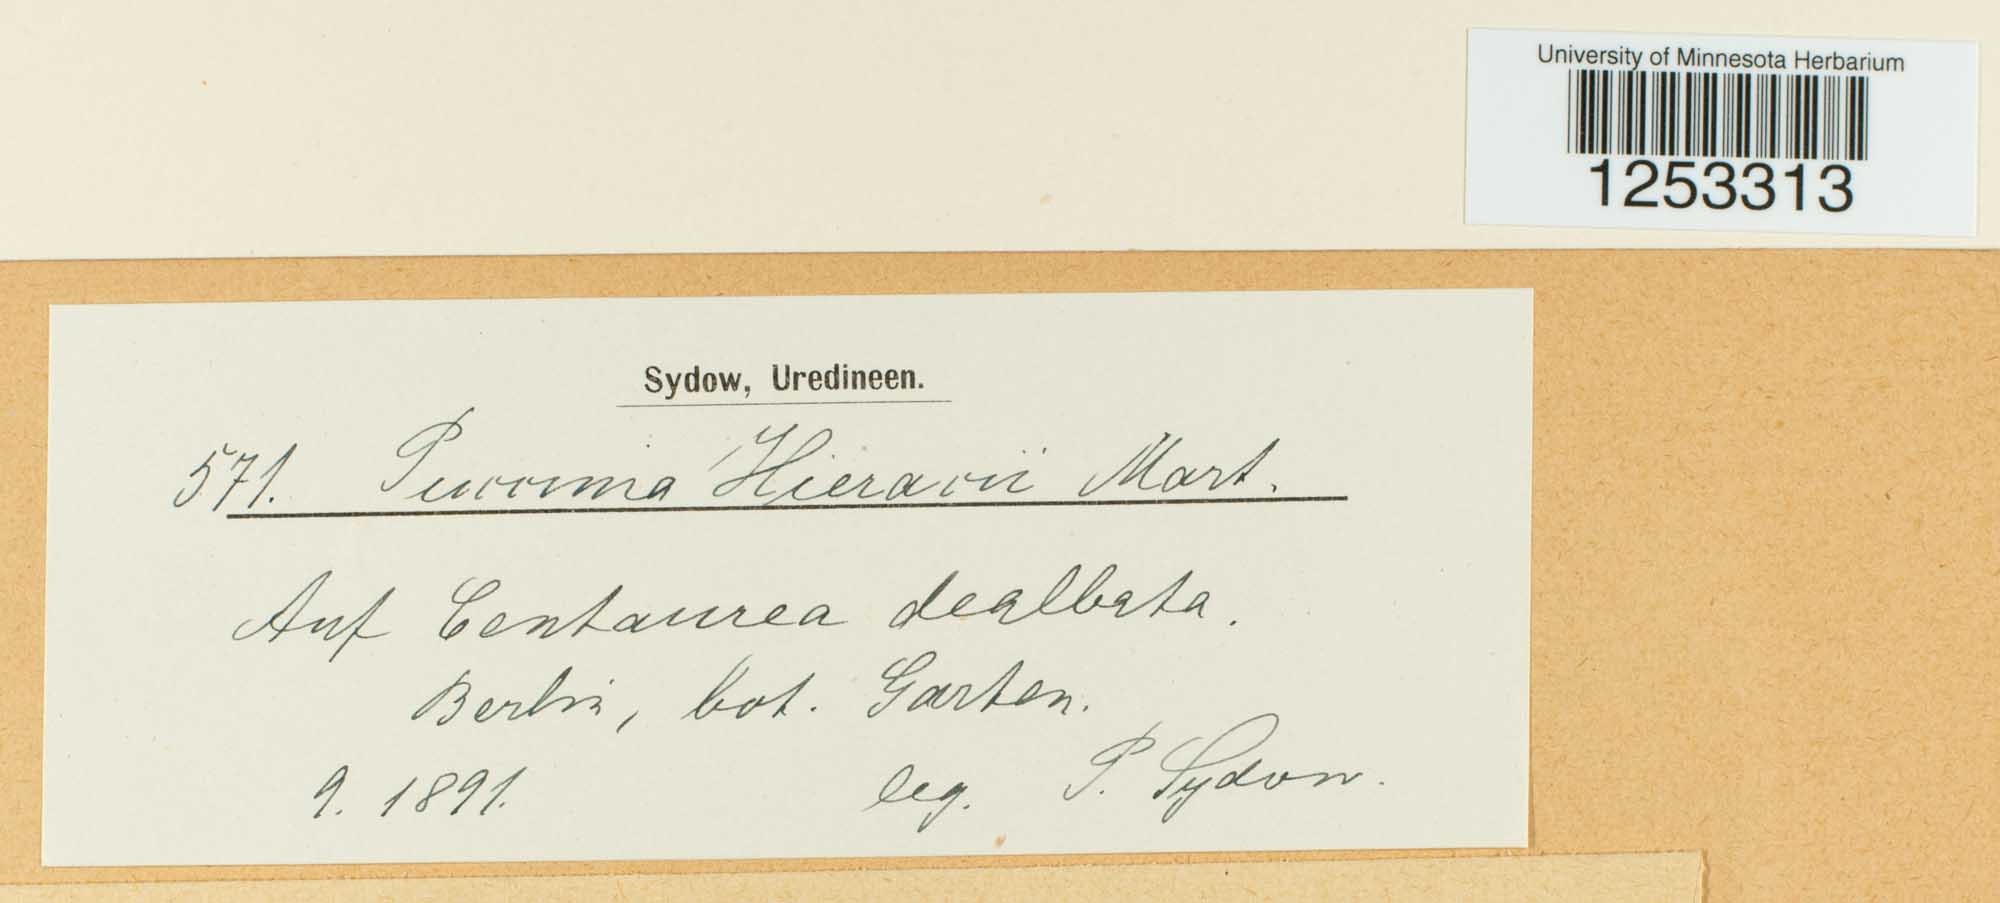 University of Minnesota Herbarium
1253313
Sydow, Uredineen.
571. Puccinia Hieracii Mart.
Auf Centaurea dealbata.
Berlin, bot. Garten.
9. 1891. leg. P. Sydow.